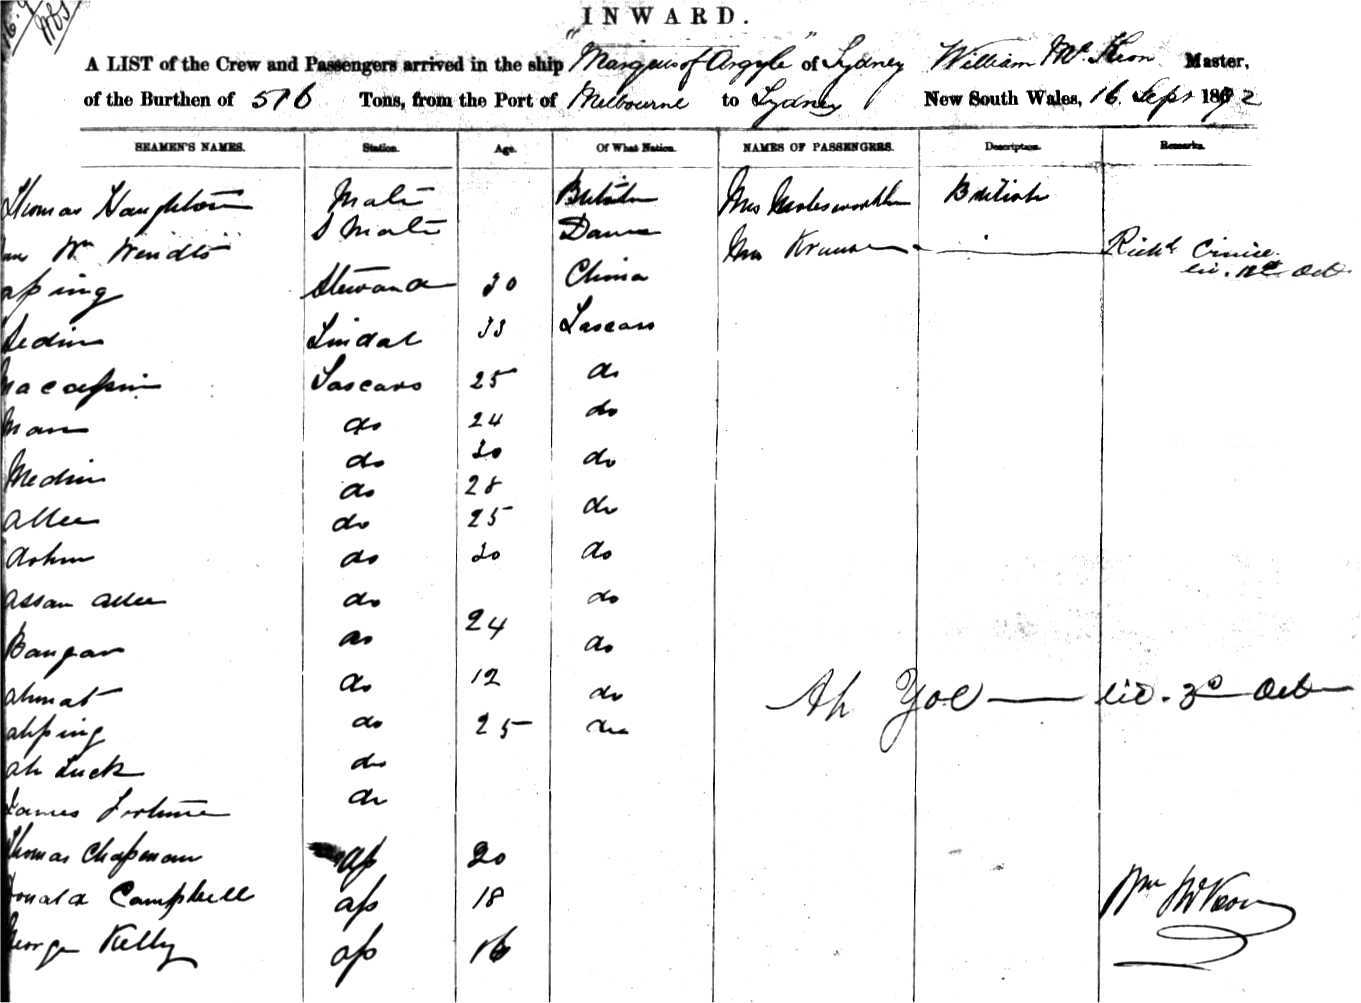 INWARD.
A LIST of the Crew and Passengers arrived in the ship "Marquis of Argyle" of Sydney William McKeon Master,
of the Burthen of 516 Tons, from the Port of Melbourne to Sydney New South Wales, 16 Sept 1872
SEAMEN'S NAMES. Station. Age. Of What Nation. NAMES OF PASSENGERS. Description. Remarks.
Thomas Haughton Mate British Mrs Molesworth British
Wm Wendts 2 Mate Dane Mrs Krause Richd
lic. Oct
aping Steward 30 China
Sedin Sindal 33 Lascars
Macassin Lascars 25 do
Man do 24 do
Medin do 30 do
allee do 28 do
do 25 do
assan allee do 30 do
Bangar do 24 do
ahmat do 12 do
ahping do 25 do
Ah Yoe lic. 3d Oct
ah Luck do
James do
Thomas Chapman ap 20
Donald Campbell ap 18
George Kelly ap 16
Wm McKeon